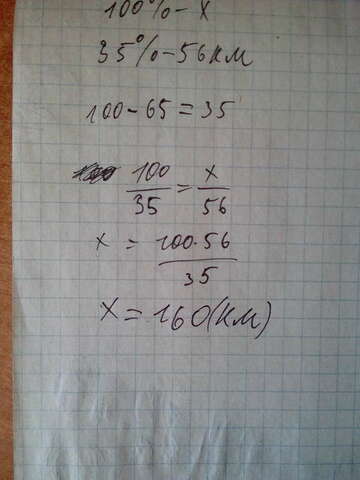 100% - x
35% - 56 км
100 - 65 = 35
100/35 = x/56
x = 100·56/35
x = 160(км)